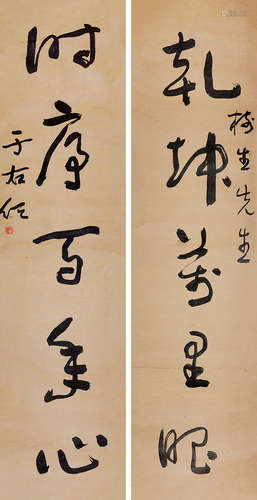 乾坤萬里眼
樹生先生
时序百年心
于右任